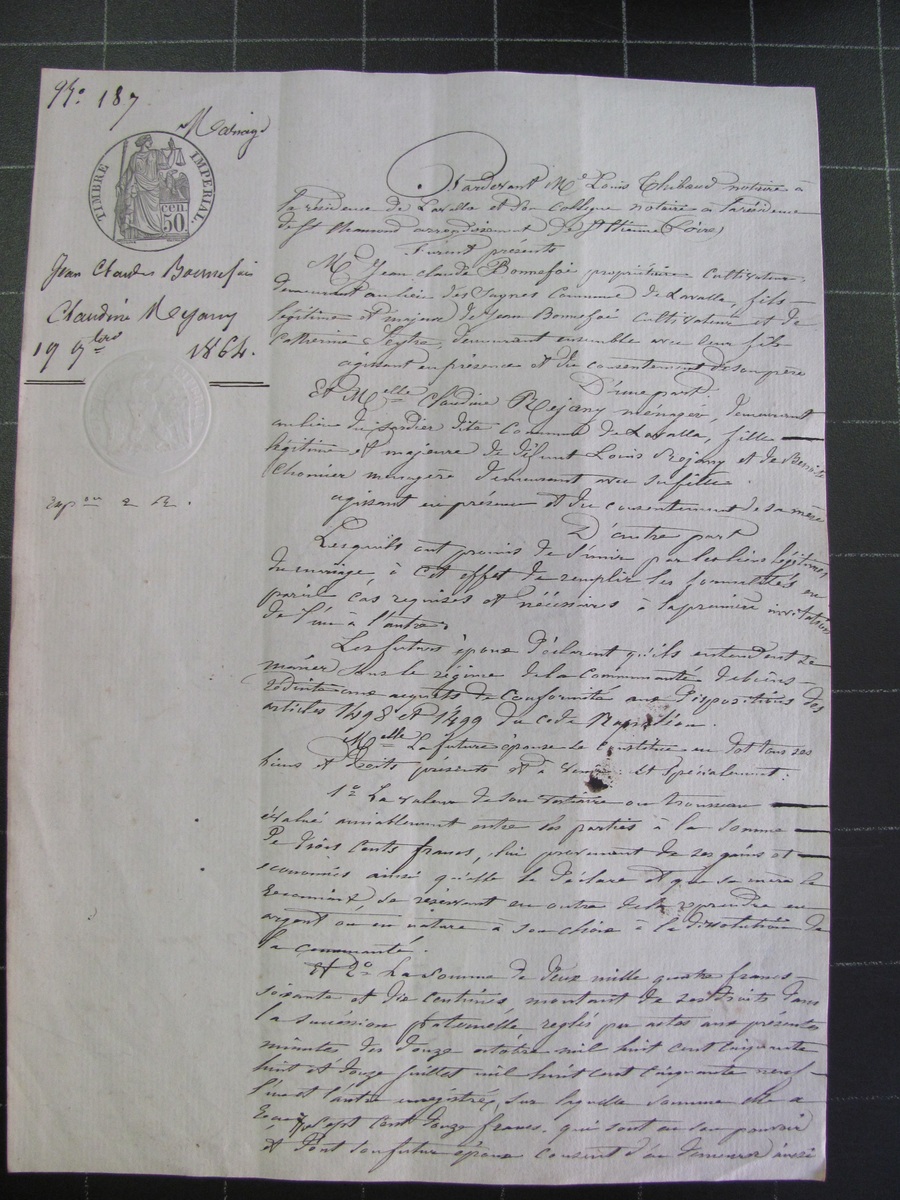 No. 187
Mariage
TIMBRE IMPERIAL
cen.
50.
Jean Claude Bonnefoi
Claudine Rejany
19 9bre 1864.
exp on 2 R.
Pardevant Me Louis Thibaud notaire à
la résidence de Lavalla et son collègue notaire à la résidence
de St Chamond arrondissement de St Etienne (Loire)
Furent présents
Mr Jean Claude Bonnefoi propriétaire cultivateur,
demeurant au lieu des Sagnes Commune de Lavalla, fils
légitime et majeur de Jean Bonnefoi cultivateur et de
Catherine Seytre, demeurant ensemble avec leur fils
agissant en présence et du consentement de son père
D'une part.
Et Melle Claudine Rejany ménagère, demeurant
au lieu du dite Commune de Lavalla, fille
légitime et majeure de défunt Louis Rejany et de Benoite
Chomier ménagère demeurant avec sa fille.
agissant en présence et du consentement de sa mère
D'autre part
Lesquels ont promis de s'unir par les liens légitimes
du mariage, à cet effet de remplir les formalités en
pareil cas requises et nécessaires à la première invitation
de l'un à l'autre.
Les futurs époux déclarent qu'ils entendent se
marier sous le régime de la Communauté de biens
réduite aux acquets de conformité aux dispositions des
articles 1498 et 1499 du code Napoléon.
Melle La future épouse se constitue en dot tous ses
biens et droits présents et à venir et spécialement:
1o La valeur de son vestiaire ou trousseau
évalué amiablement entre les parties à la somme
de trois cents francs, lui provenant de ses gains et
économies ainsi qu'elle le déclare et que sa mère le
reconnait se réservant en outre de le reprendre en
argent ou en nature à son choix à la dissolution de
la communauté.
Et 2o La somme de deux mille quatre francs
soixante et dix centimes montant de ses droits dans
la succession paternelle reglés par actes aux présentes
minutes des douze octobre mil huit cent cinquante
huit et douze juillet mil huit cent cinquante neuf
l'un et l'autre enregistrés, sur laquelle somme elle a
reçu sept cent douze francs, qui sont en son pouvoir
et dont son futur époux consent d'en demeurer